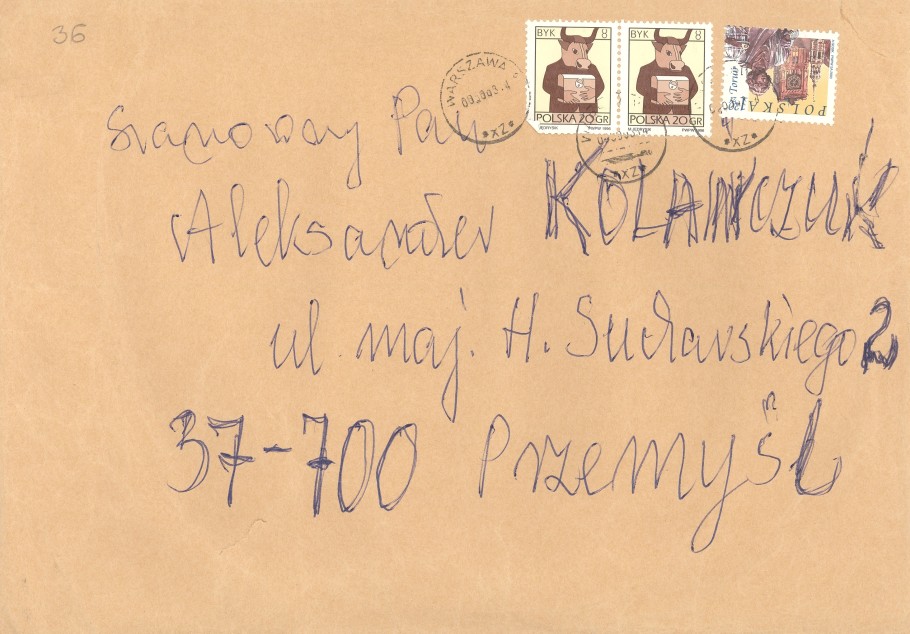 36
BYK 8
POLSKA 20 GR
BYK 8
POLSKA 20 GR
Toruń
POLSKA
WARSZAWA
*XZ*
*XZ*
*XZ*
Szanowny Pan
Aleksander KOLAŃCZUK
ul. maj. H. Sucharskiego 2
37-700 Przemyśl